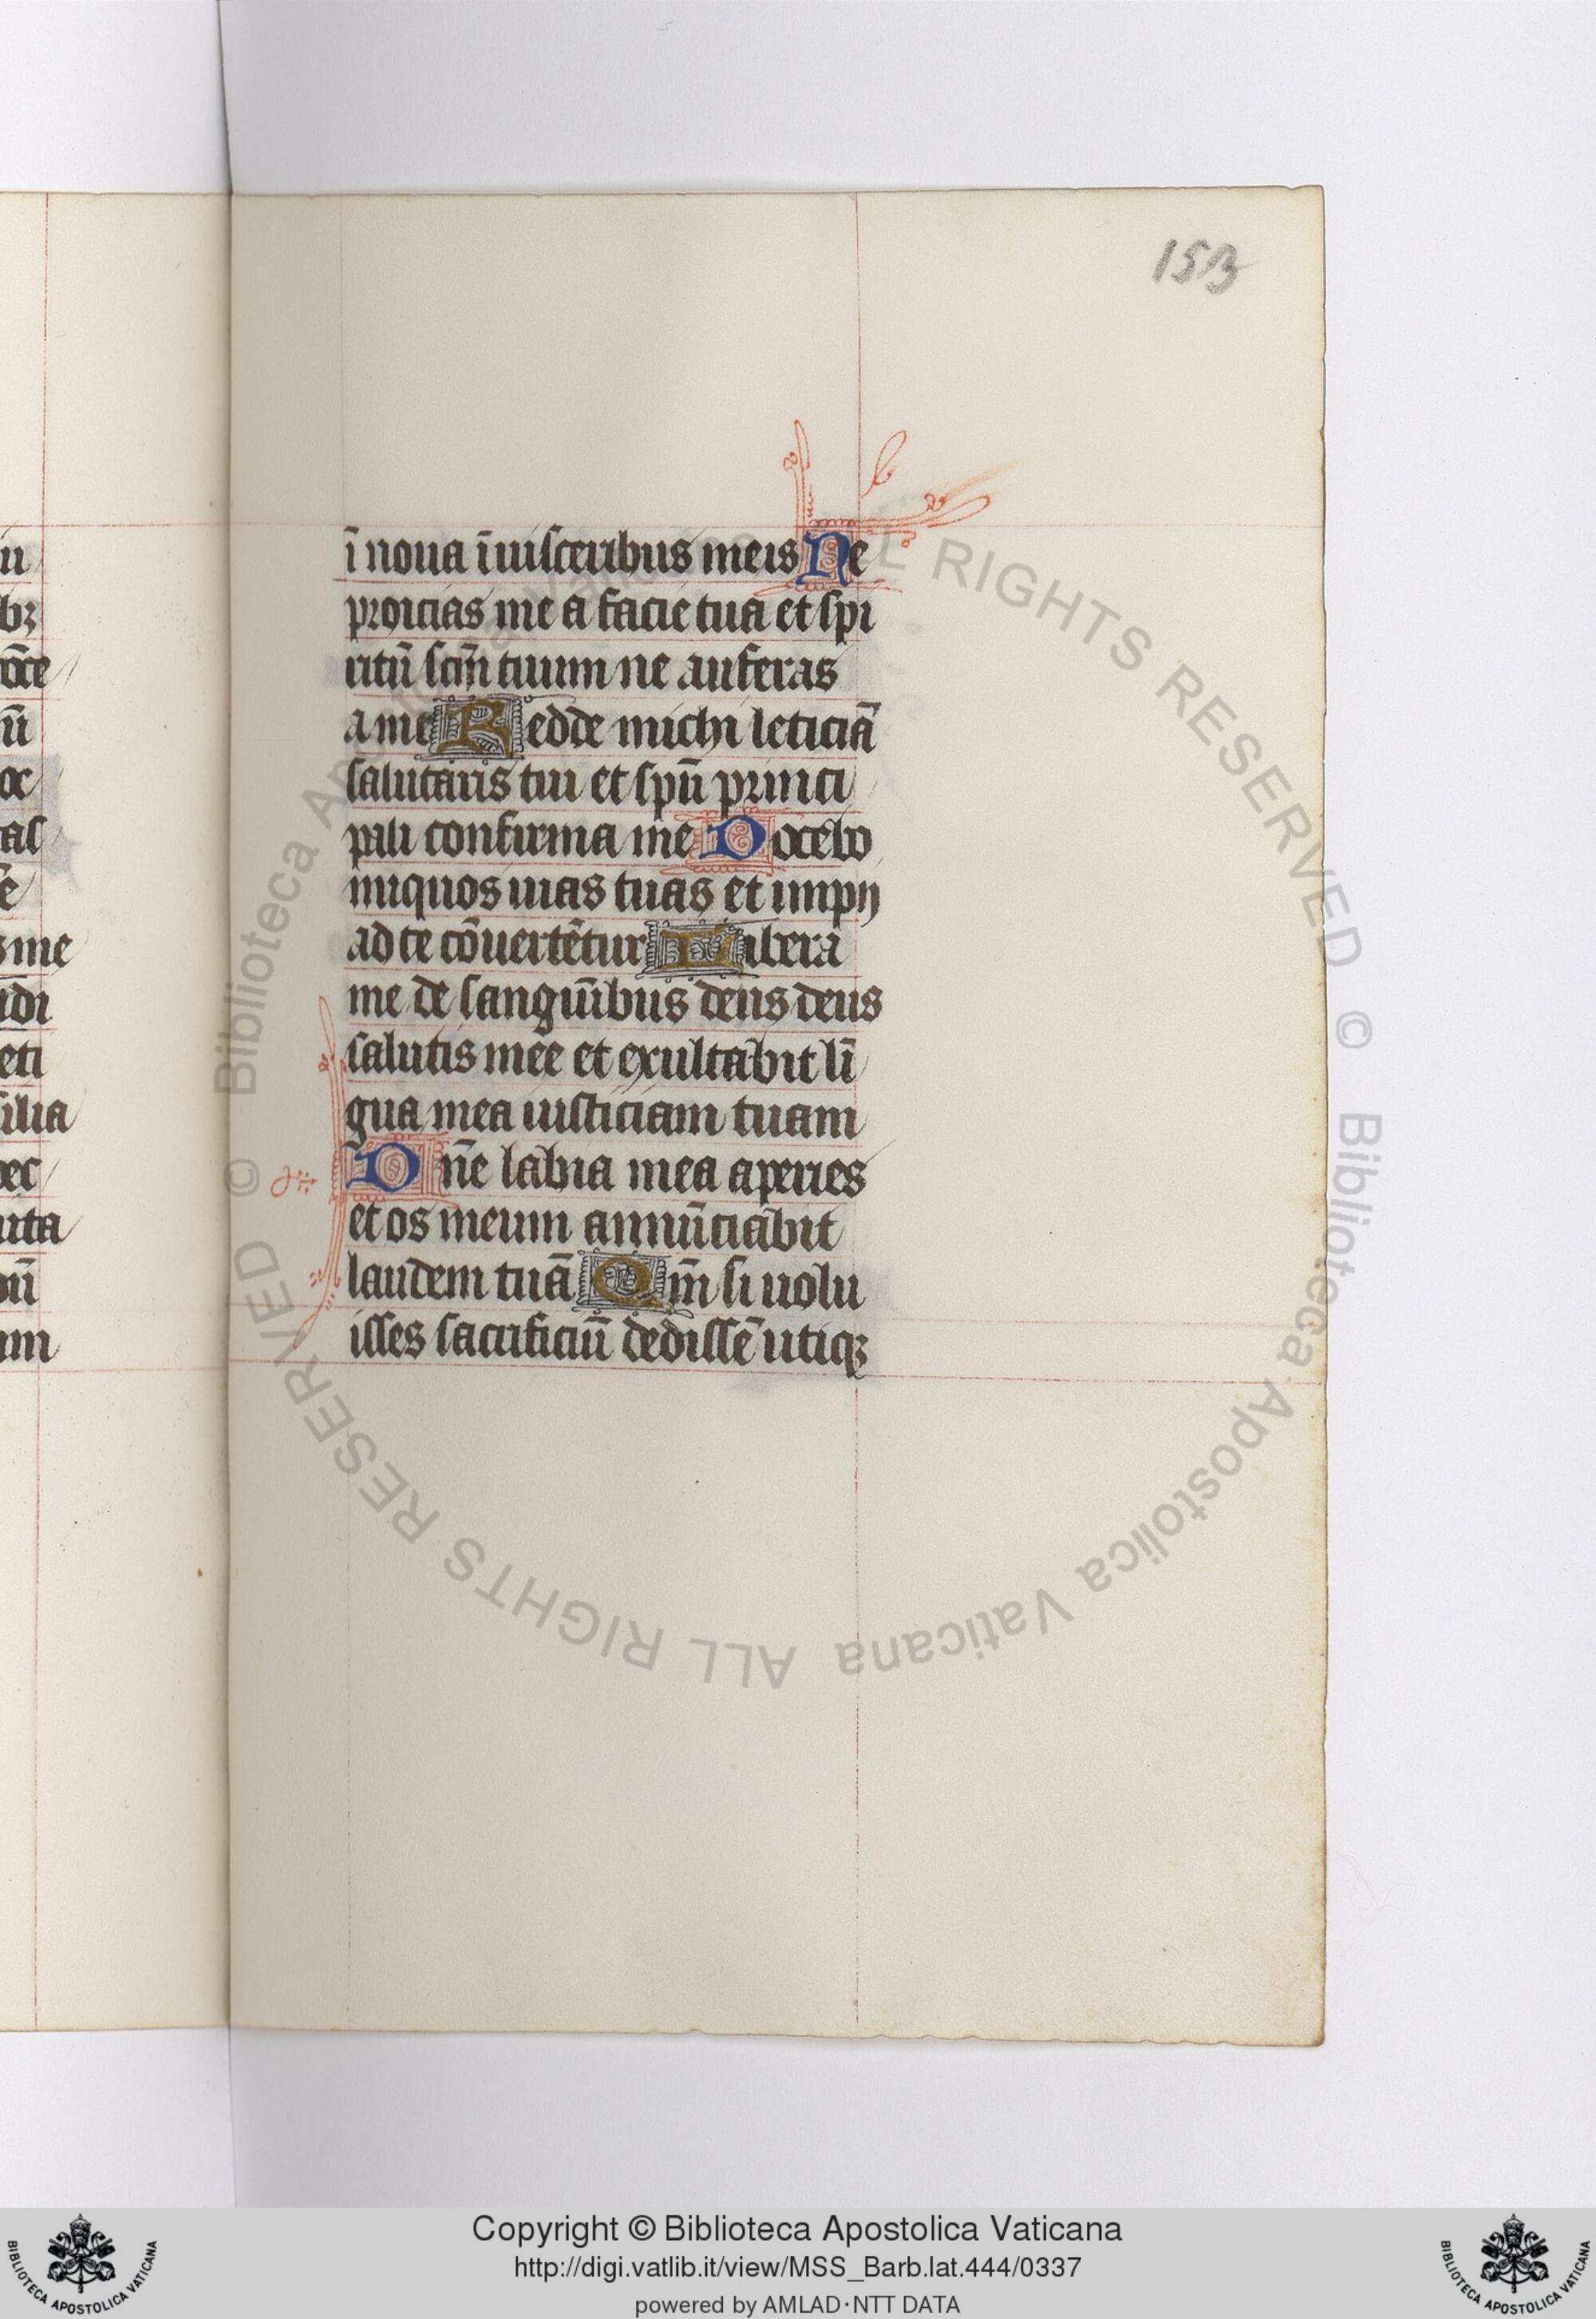 153
ī noua īuisceribus meis Ne
proicias me a facie tua et spi
ritū scm̄ tuum ne auferas
a me Redde michi leticiā
salutaris tui et spū princi
pali confirma me Docebo
iniquos uias tuas et impij
ad te cōuertētur Libera
me de sanguībus deus deus
salutis mee et exultabit lī
gua mea iusticiam tuam
Dn̄e labia mea aperies
et os meum annūciabit
laudem tuā Qm̄ si uolu
isses sacrificiū dedissē utiqꝫ
u
bꝫ
ōce
ū
oc
al
ē
s me
idi
eti
ilia
pec
uta
ū
um
© Biblioteca Apostolica Vaticana ALL RIGHTS RESERVED © Biblioteca Apostolica Vaticana ALL RIGHTS RESERVED
Copyright © Biblioteca Apostolica Vaticana
http://digi.vatlib.it/view/MSS_Barb.lat.444/0337
powered by AMLAD·NTT DATA
BIBLIOTECA APOSTOLICA VATICANA
BIBLIOTECA APOSTOLICA VATICANA